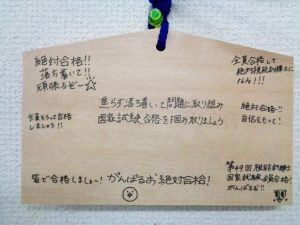 絶対合格!!
落ち着いて!!
頑張るぞー☆
全員合格して
なる!!!
焦らず落ち着いて問題に取り組み
国家試験合格を掴み取りましょう
全員そろって合格
しましょう!!
絶対合格!!
自信をもって!
皆で合格しましょ〜!
がんばるお絶対合格!
第49回
国家試験全員合格!
がんばるお!!